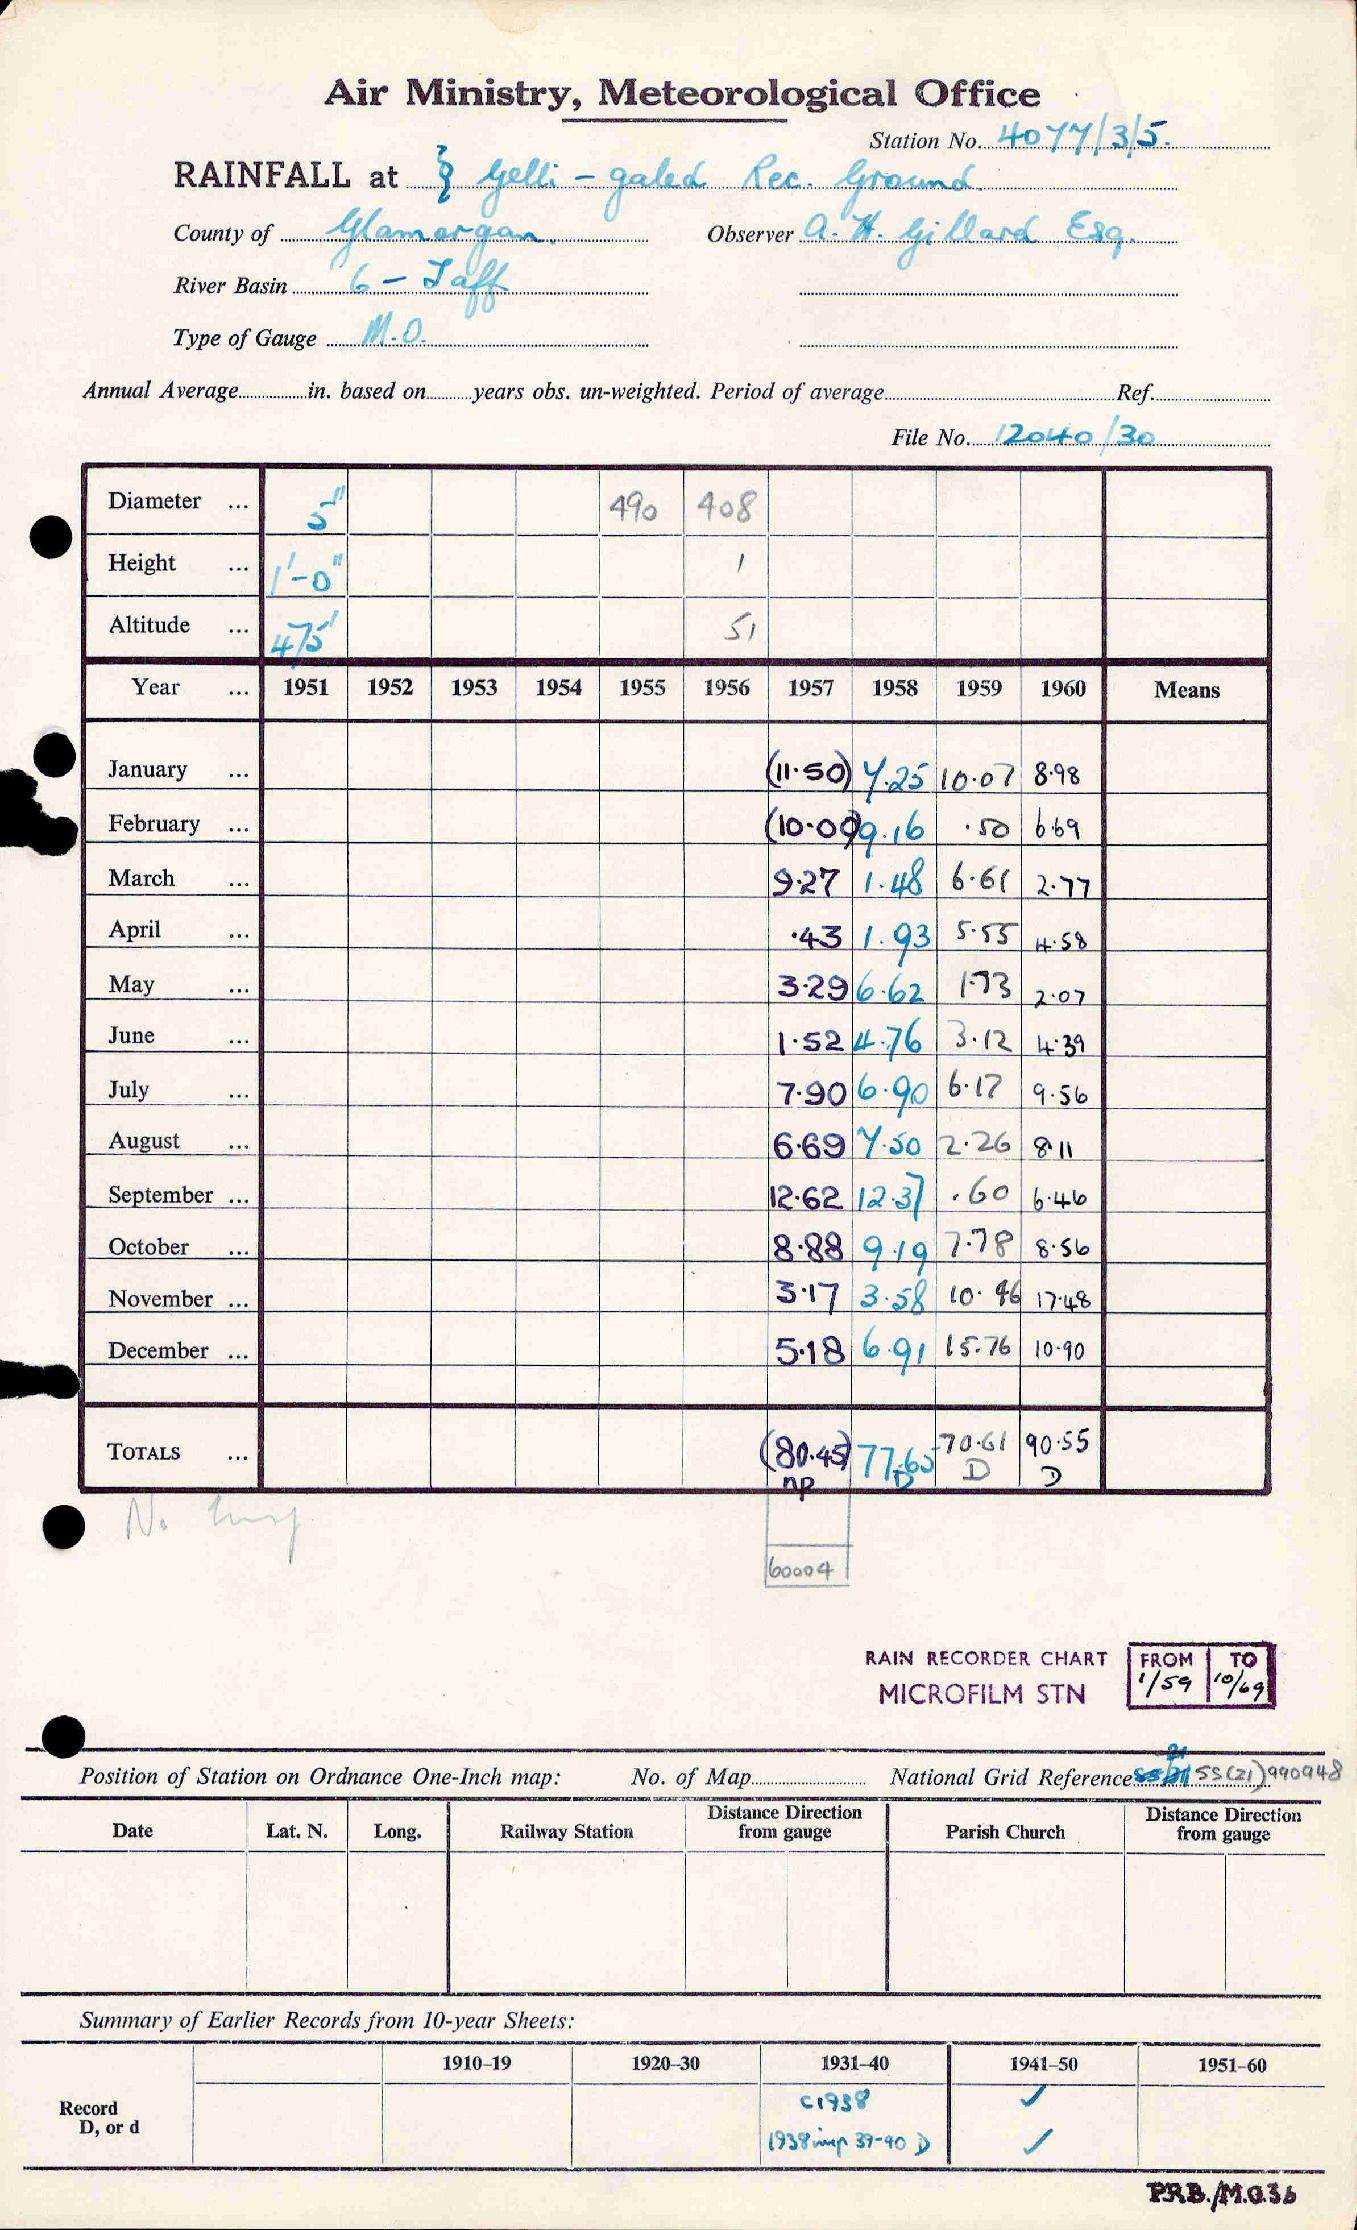 Air Ministry, Meteorological Office
Station No. 4077/3/5.
RAINFALL at } Gelli-galed Rec. Ground.
County of Glamorgan. Observer A. H. Gillard Esq.
River Basin 6 - Taff
Type of Gauge M.O.
Annual Average in. based on years obs. un-weighted. Period of average Ref.
File No. 12040/30
Diameter ... 5" 490 408
Height ... 1'-0" 1
Altitude ... 475' 51
Year ... 1951 1952 1953 1954 1955 1956 1957 1958 1959 1960 Means
January ... (11·50) 7.25 10·07 8·98
February ... (10·00) 9.16 ·50 6·69
March ... 9·27 1.48 6·61 2·77
April ... ·43 1.93 5·55 4·58
May ... 3·29 6·62 1·73 2·07
June ... 1·52 4·76 3·12 4·39
July ... 7·90 6·90 6·17 9·56
August ... 6·69 7·50 2·26 8·11
September ... 12·62 12·37 ·60 6·46
October ... 8·88 9·19 7·78 8·56
November ... 3·17 3·58 10·46 17·48
December ... 5·18 6·91 15·76 10·90
TOTALS ... (80·45) 77·65 70·61 90·55
np D D D
No
60004
RAIN RECORDER CHART FROM TO
MICROFILM STN 1/59 10/69
Position of Station on Ordnance One-Inch map: No. of Map National Grid Reference SS(21)990948
Date Lat. N. Long. Railway Station Distance Direction from gauge Parish Church Distance Direction from gauge
Summary of Earlier Records from 10-year Sheets:
1910–19 1920–30 1931–40 1941–50 1951–60
Record c1938 ✓
D, or d 1938 imp 39-40 D ✓
P.R.B./M.O.36